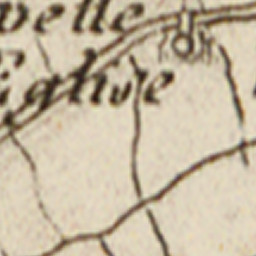 velle
Eglise